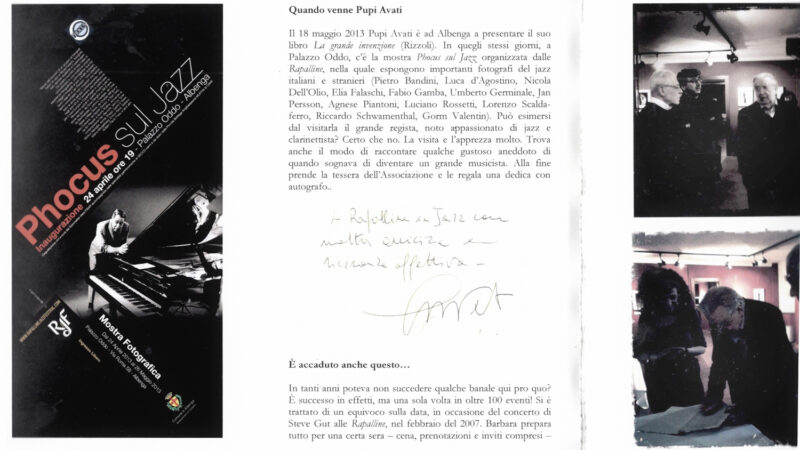 Phocus sul Jazz
Inaugurazione 24 aprile ore 19 - Palazzo Oddo - Albenga
RJF
Mostra Fotografica
Palazzo Oddo - Via Roma 58 - Albenga
Quando venne Pupi Avati
Il 18 maggio 2013 Pupi Avati è ad Albenga a presentare il suo
libro La grande invenzione (Rizzoli). In quegli stessi giorni, a
Palazzo Oddo, c'è la mostra Phocus sul Jazz organizzata dalle
Rapalline, nella quale espongono importanti fotografi del jazz
italiani e stranieri (Pietro Bandini, Luca d'Agostino, Nicola
Dell'Olio, Elia Falaschi, Fabio Gamba, Umberto Germinale, Jan
Persson, Agnese Piantoni, Luciano Rossetti, Lorenzo Scalda-
ferro, Riccardo Schwamenthal, Gorm Valentin). Può esimersi
dal visitarla il grande regista, noto appassionato di jazz e
clarinettista? Certo che no. La visita e l'apprezza molto. Trova
anche il modo di raccontare qualche gustoso aneddoto di
quando sognava di diventare un grande musicista. Alla fine
prende la tessera dell'Associazione e le regala una dedica con
autografo..
A Rapalline in Jazz con
molta amicizia e
affettiva -
È accaduto anche questo…
In tanti anni poteva non succedere qualche banale qui pro quo?
È successo in effetti, ma una sola volta in oltre 100 eventi! Si è
trattato di un equivoco sulla data, in occasione del concerto di
Steve Gut alle Rapalline, nel febbraio del 2007. Barbara prepara
tutto per una certa sera – cena, prenotazioni e inviti compresi –